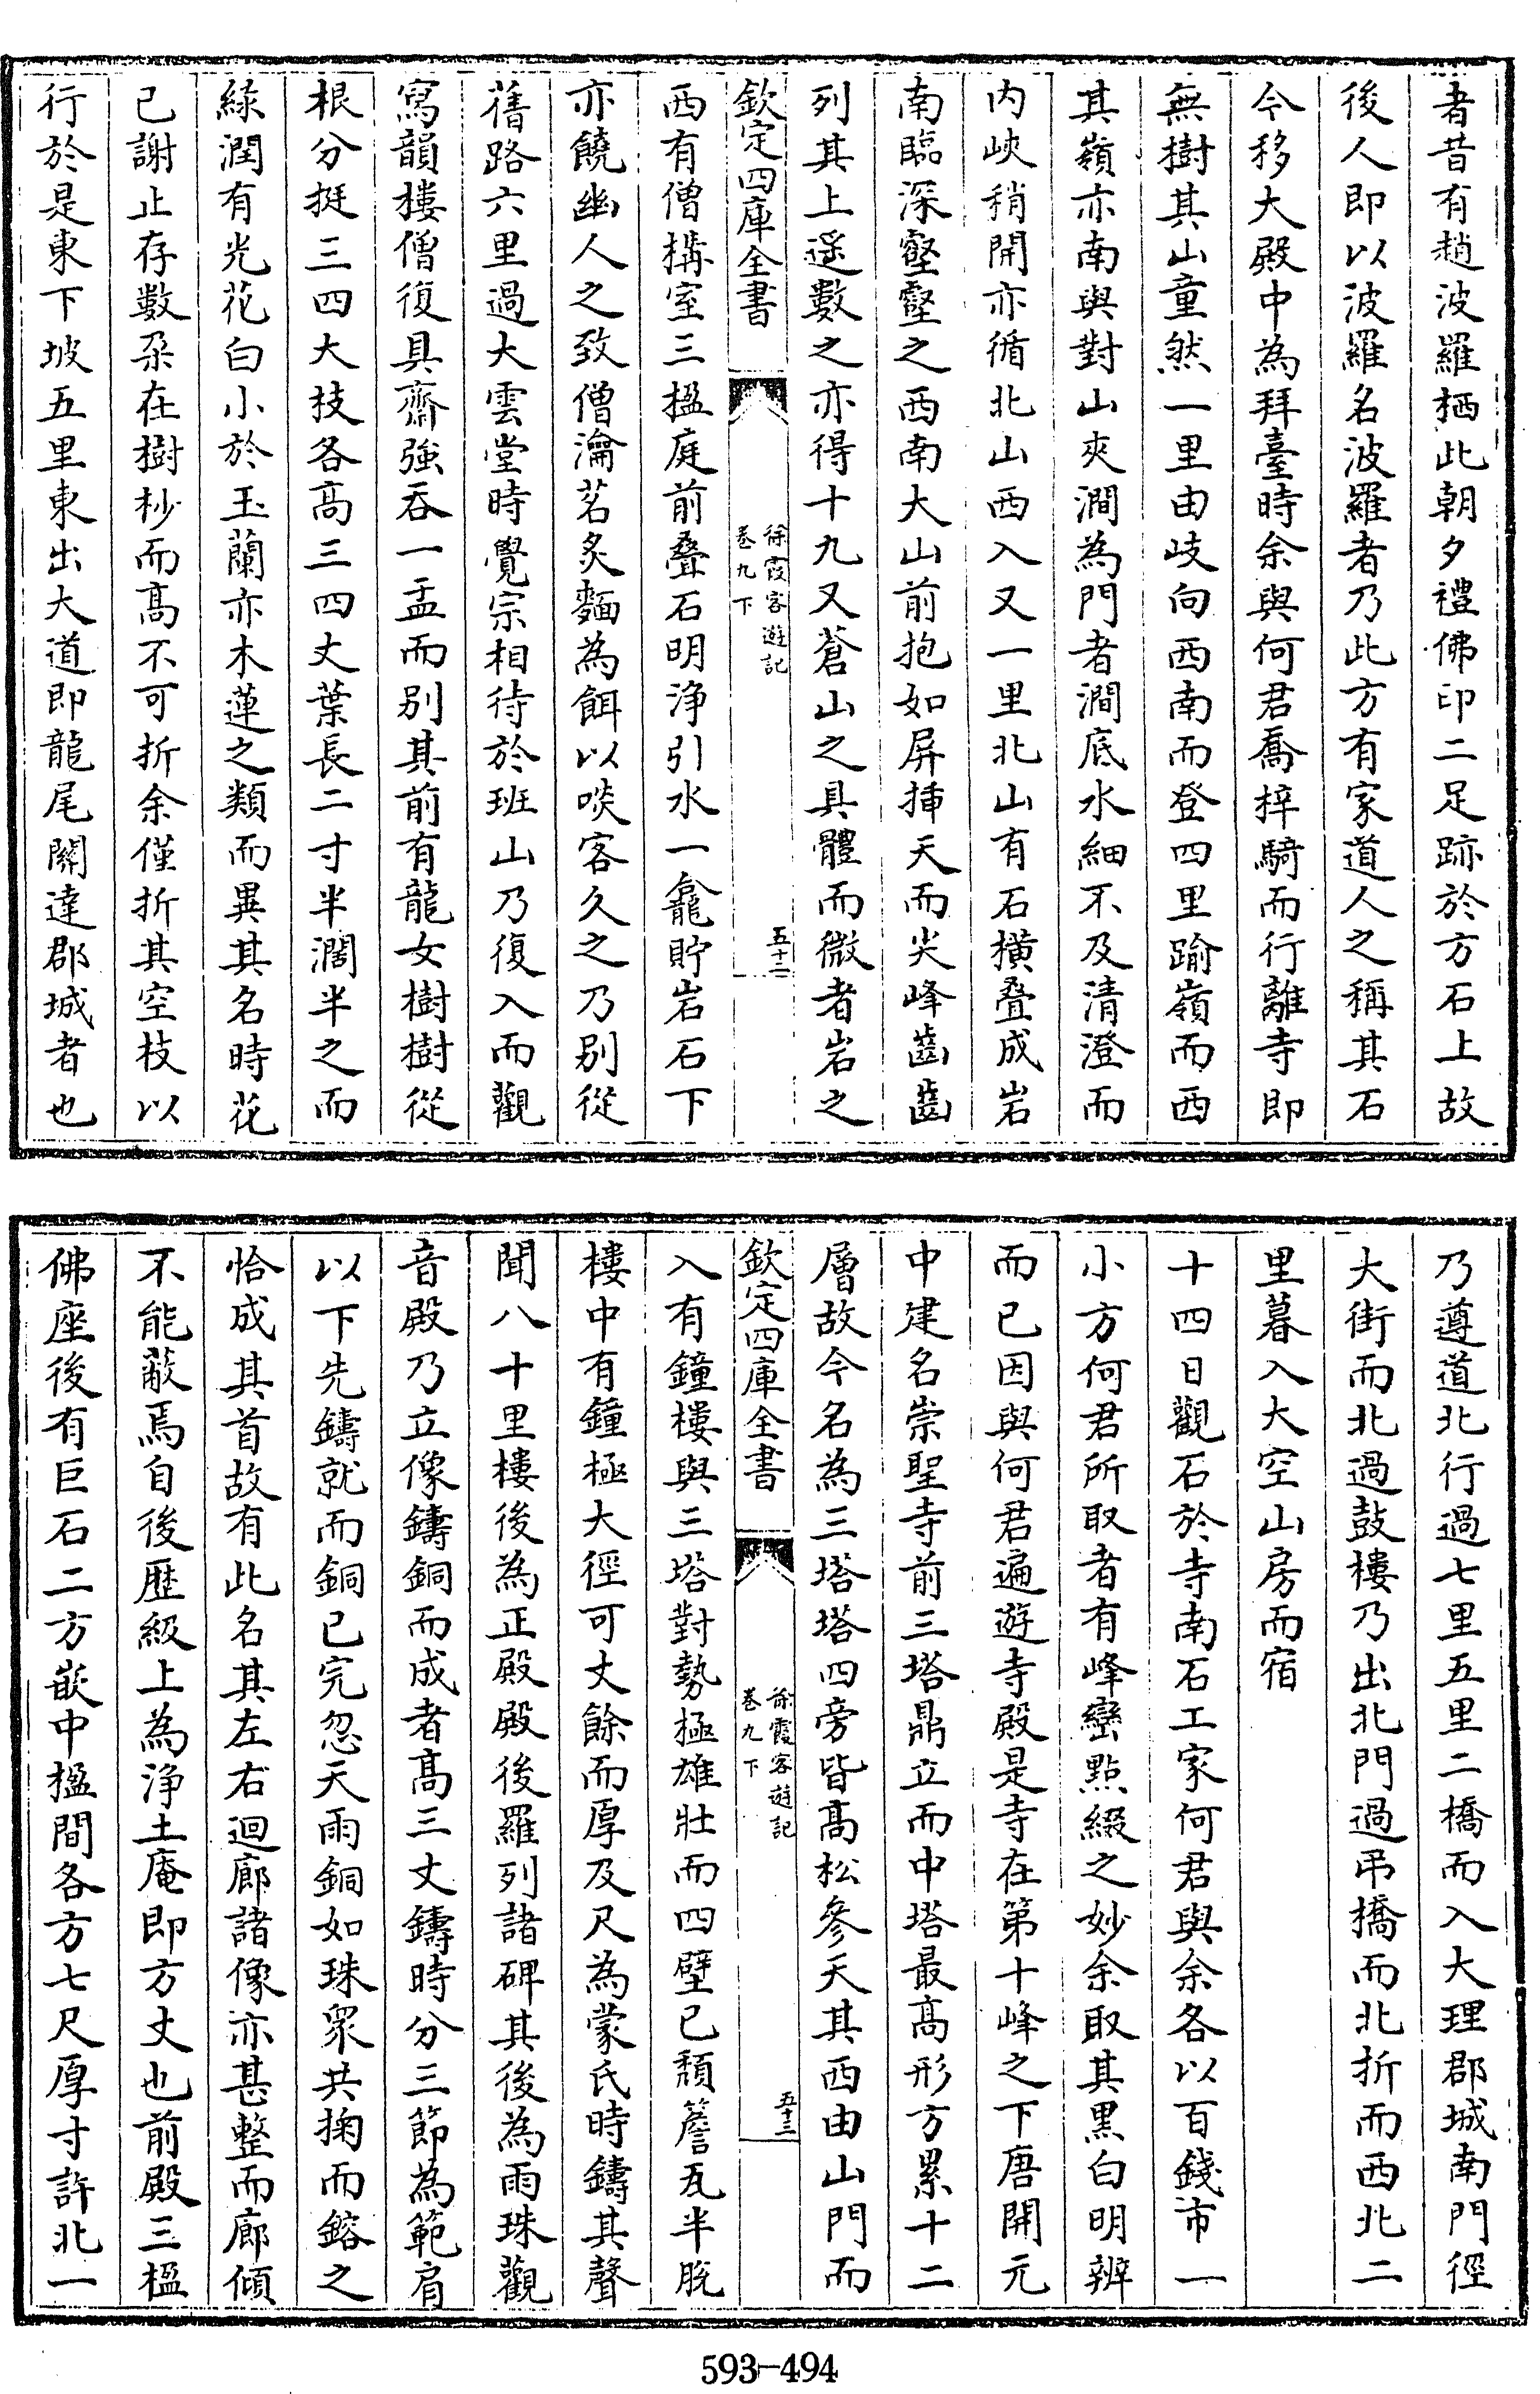 者昔有趙波羅栖此朝夕禮佛印二足跡於方石上故
後人即以波羅名波羅者乃此方有家道人之稱其石
今移大殿中為拜臺時余與何君喬梓騎而行離寺即
無樹其山童然一里由岐向西南而登四里踰嶺而西
其嶺亦南與對山夾澗為門者澗底水細不及清澄而
内峽稍開亦循北山西入又一里北山有石橫疊成岩
南臨深壑壑之西南大山前抱如屏揷天而尖峰齒齒
列其上遥數之亦得十九又蒼山之具體而微者岩之
欽定四庫全書
徐霞客遊記
卷九下
五十二
西有僧搆室三楹庭前疊石明浄引水一龕貯岩石下
亦饒幽人之致僧瀹茗炙麵為餌以啖客久之乃别從
舊路六里過大雲堂時覺宗相待於班山乃復入而觀
寫韻樓僧復具齋強吞一盂而别其前有龍女樹樹從
根分挺三四大枝各高三四丈葉長二寸半濶半之而
綠潤有光花白小於玉蘭亦木蓮之類而異其名時花
已謝止存數朶在樹杪而髙不可折余僅折其空枝以
行於是東下坡五里東出大道即龍尾關達郡城者也
乃遵道北行過七里五里二橋而入大理郡城南門徑
大街而北過鼓樓乃出北門過吊橋而北折而西北二
里暮入大空山房而宿
十四日觀石於寺南石工家何君與余各以百錢市一
小方何君所取者有峰巒點綴之妙余取其黑白明辨
而已因與何君遍遊寺殿是寺在第十峰之下唐開元
中建名崇聖寺前三塔鼎立而中塔最高形方累十二
層故今名為三塔塔四旁皆髙松參天其西由山門而
欽定四庫全書
徐霞客遊記
卷九下
五十三
入有鐘樓與三塔對勢極雄壯而四壁已頹簷瓦半脱
樓中有鐘極大徑可丈餘而厚及尺為蒙氏時鑄其聲
聞八十里樓後為正殿殿後羅列諸碑其後為雨珠觀
音殿乃立像鑄銅而成者髙三丈鑄時分三節為範肩
以下先鑄就而銅已完忽天雨銅如珠衆共掬而鎔之
恰成其首故有此名其左右迴廊諸像亦甚整而廊傾
不能蔽焉自後歴級上為浄土庵即方丈也前殿三楹
佛座後有巨石二方嵌中楹間各方七尺厚寸許北一
593-494